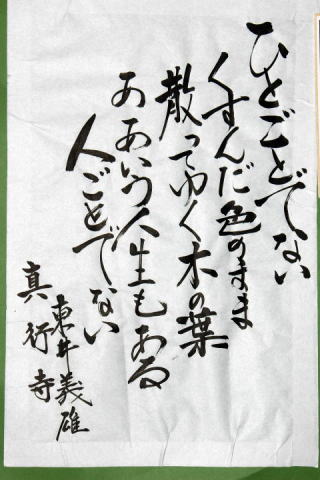 ひとごとでない
くすんだ色のまま
散ってゆく木の葉
ああいう人生もある
人ごとでない
東井義雄
真行寺